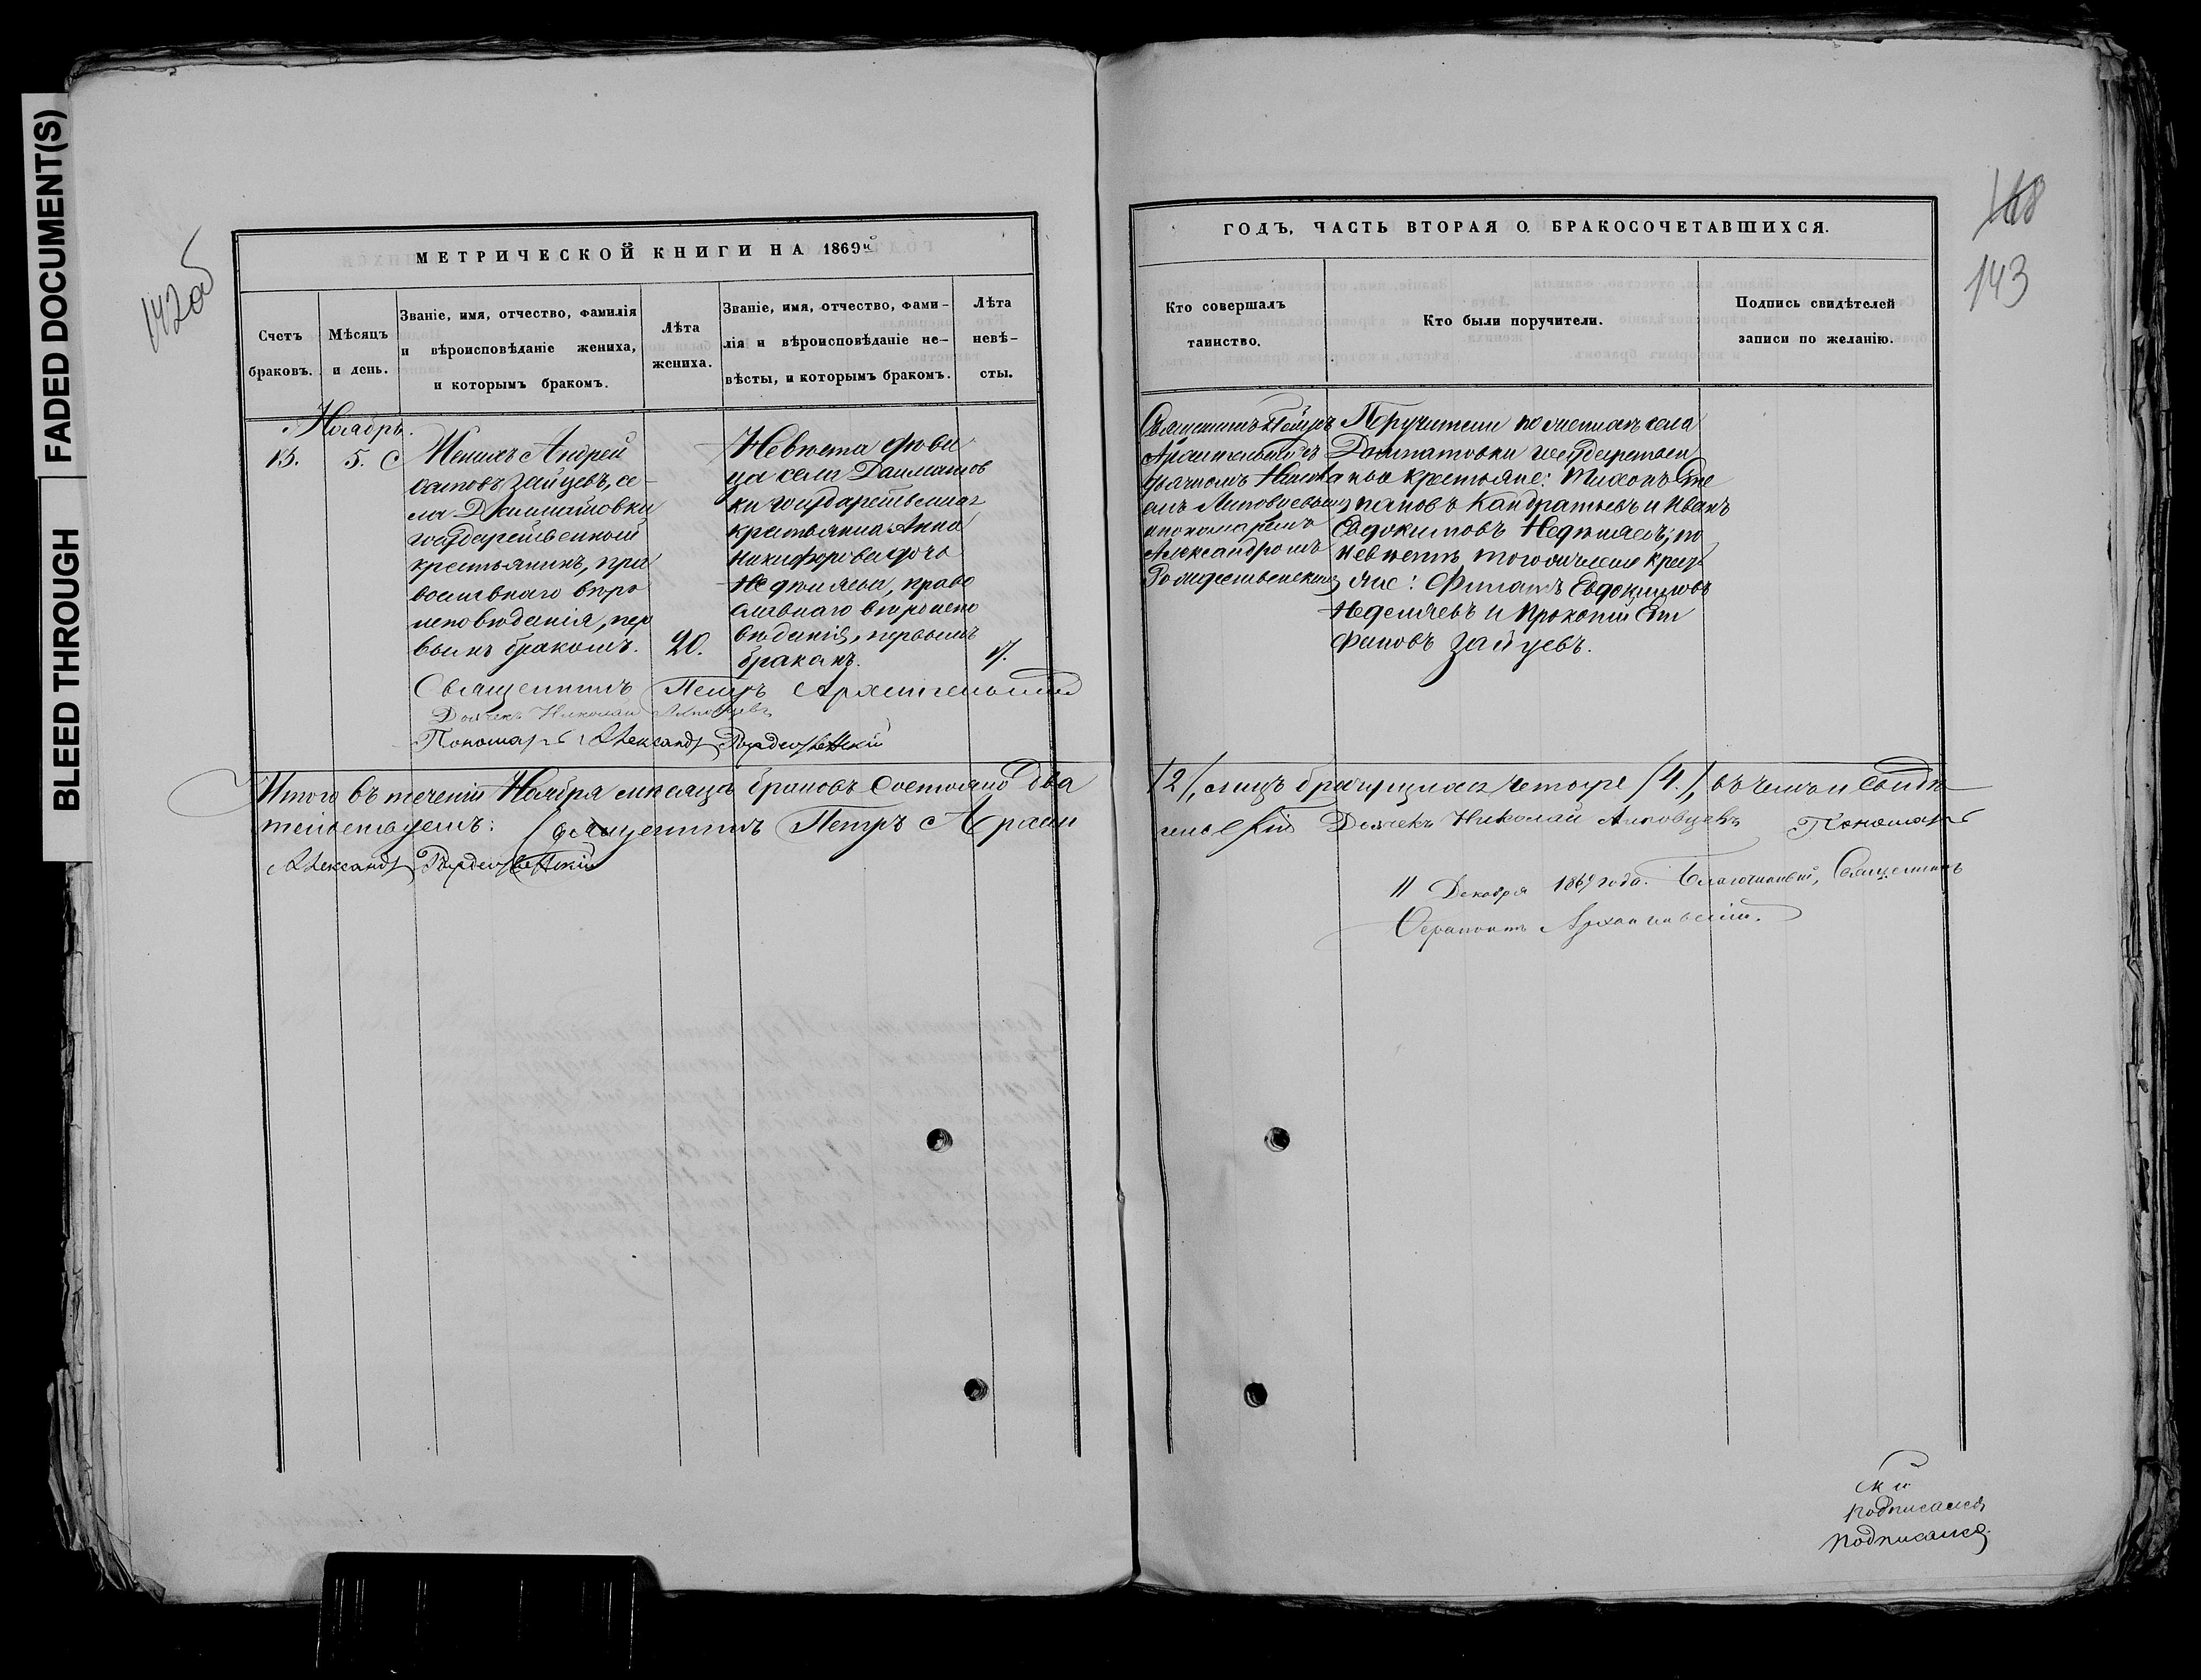 BLEED THROUGH
FADED DOCUMENT(S)
142об
МЕТРИЧЕСКОЙ КНИГИ НА 1869й
Счетъ браковъ.
Мѣсяцъ и день.
Званіе, имя, отчество, фамилія
и вѣроисповѣданіе жениха,
и которымъ бракомъ.
Лѣта
жениха.
Званіе, имя, отчество, фами-
лія и вѣроисповѣданіе не-
вѣсты, и которымъ бракомъ.
Лѣта
невѣ-
сты.
Ноябрь.
13.
5.
Женихъ Андрей
Зайцевъ, се-
ла
государственной
крестьянинъ, пра
вославнаго вѣро
исповѣданія, пер
вымъ бракомъ.
20.
Невѣста дѣви
ца села Далматов
ки государственнаг
крестьянина Анна
Никифорова дочь
православнаго вѣроиспо
вѣданія, первымъ
бракомъ.
17.
Священникъ Петръ Архангельскій
Дьячекъ Николай Липовцевъ
Пономарь Александръ Рождественскій
Итого въ теченіи Ноября мѣсяца браковъ состояло два
Священникъ Петръ Архан
Александръ Рождественскій
ГОДЪ, ЧАСТЬ ВТОРАЯ О БРАКОСОЧЕТАВШИХСЯ.
118
143
Кто совершалъ
таинство.
Кто были поручители.
Подпись свидѣтелей
записи по желанію.
Священникъ Петръ
Архангельскій съ
дьячкомъ Никола
емъ Липовцевымъ
и пономаремъ
Александромъ
Рождественскимъ
Поручители по женихѣ села
Далматовки государствен
ные крестьяне: Тихонъ Сте
пановъ Кандратьевъ и Иванъ
Евдокимовъ Недѣляевъ; по
невѣстѣ того же села крест
яне: Филатъ Евдокимовъ
Неделяевъ и Прокопій Епи
фановъ Зайцевъ.
/2/, лицъ брачущихся четыре /4./, въ чемъ и свидѣ
Дьячекъ Николай Липовцевъ Пономарь
11 Декабря 1869 года. Благочинный, Священникъ
Ѳерапонтъ Архангельскій.
скій
подписался
подписался